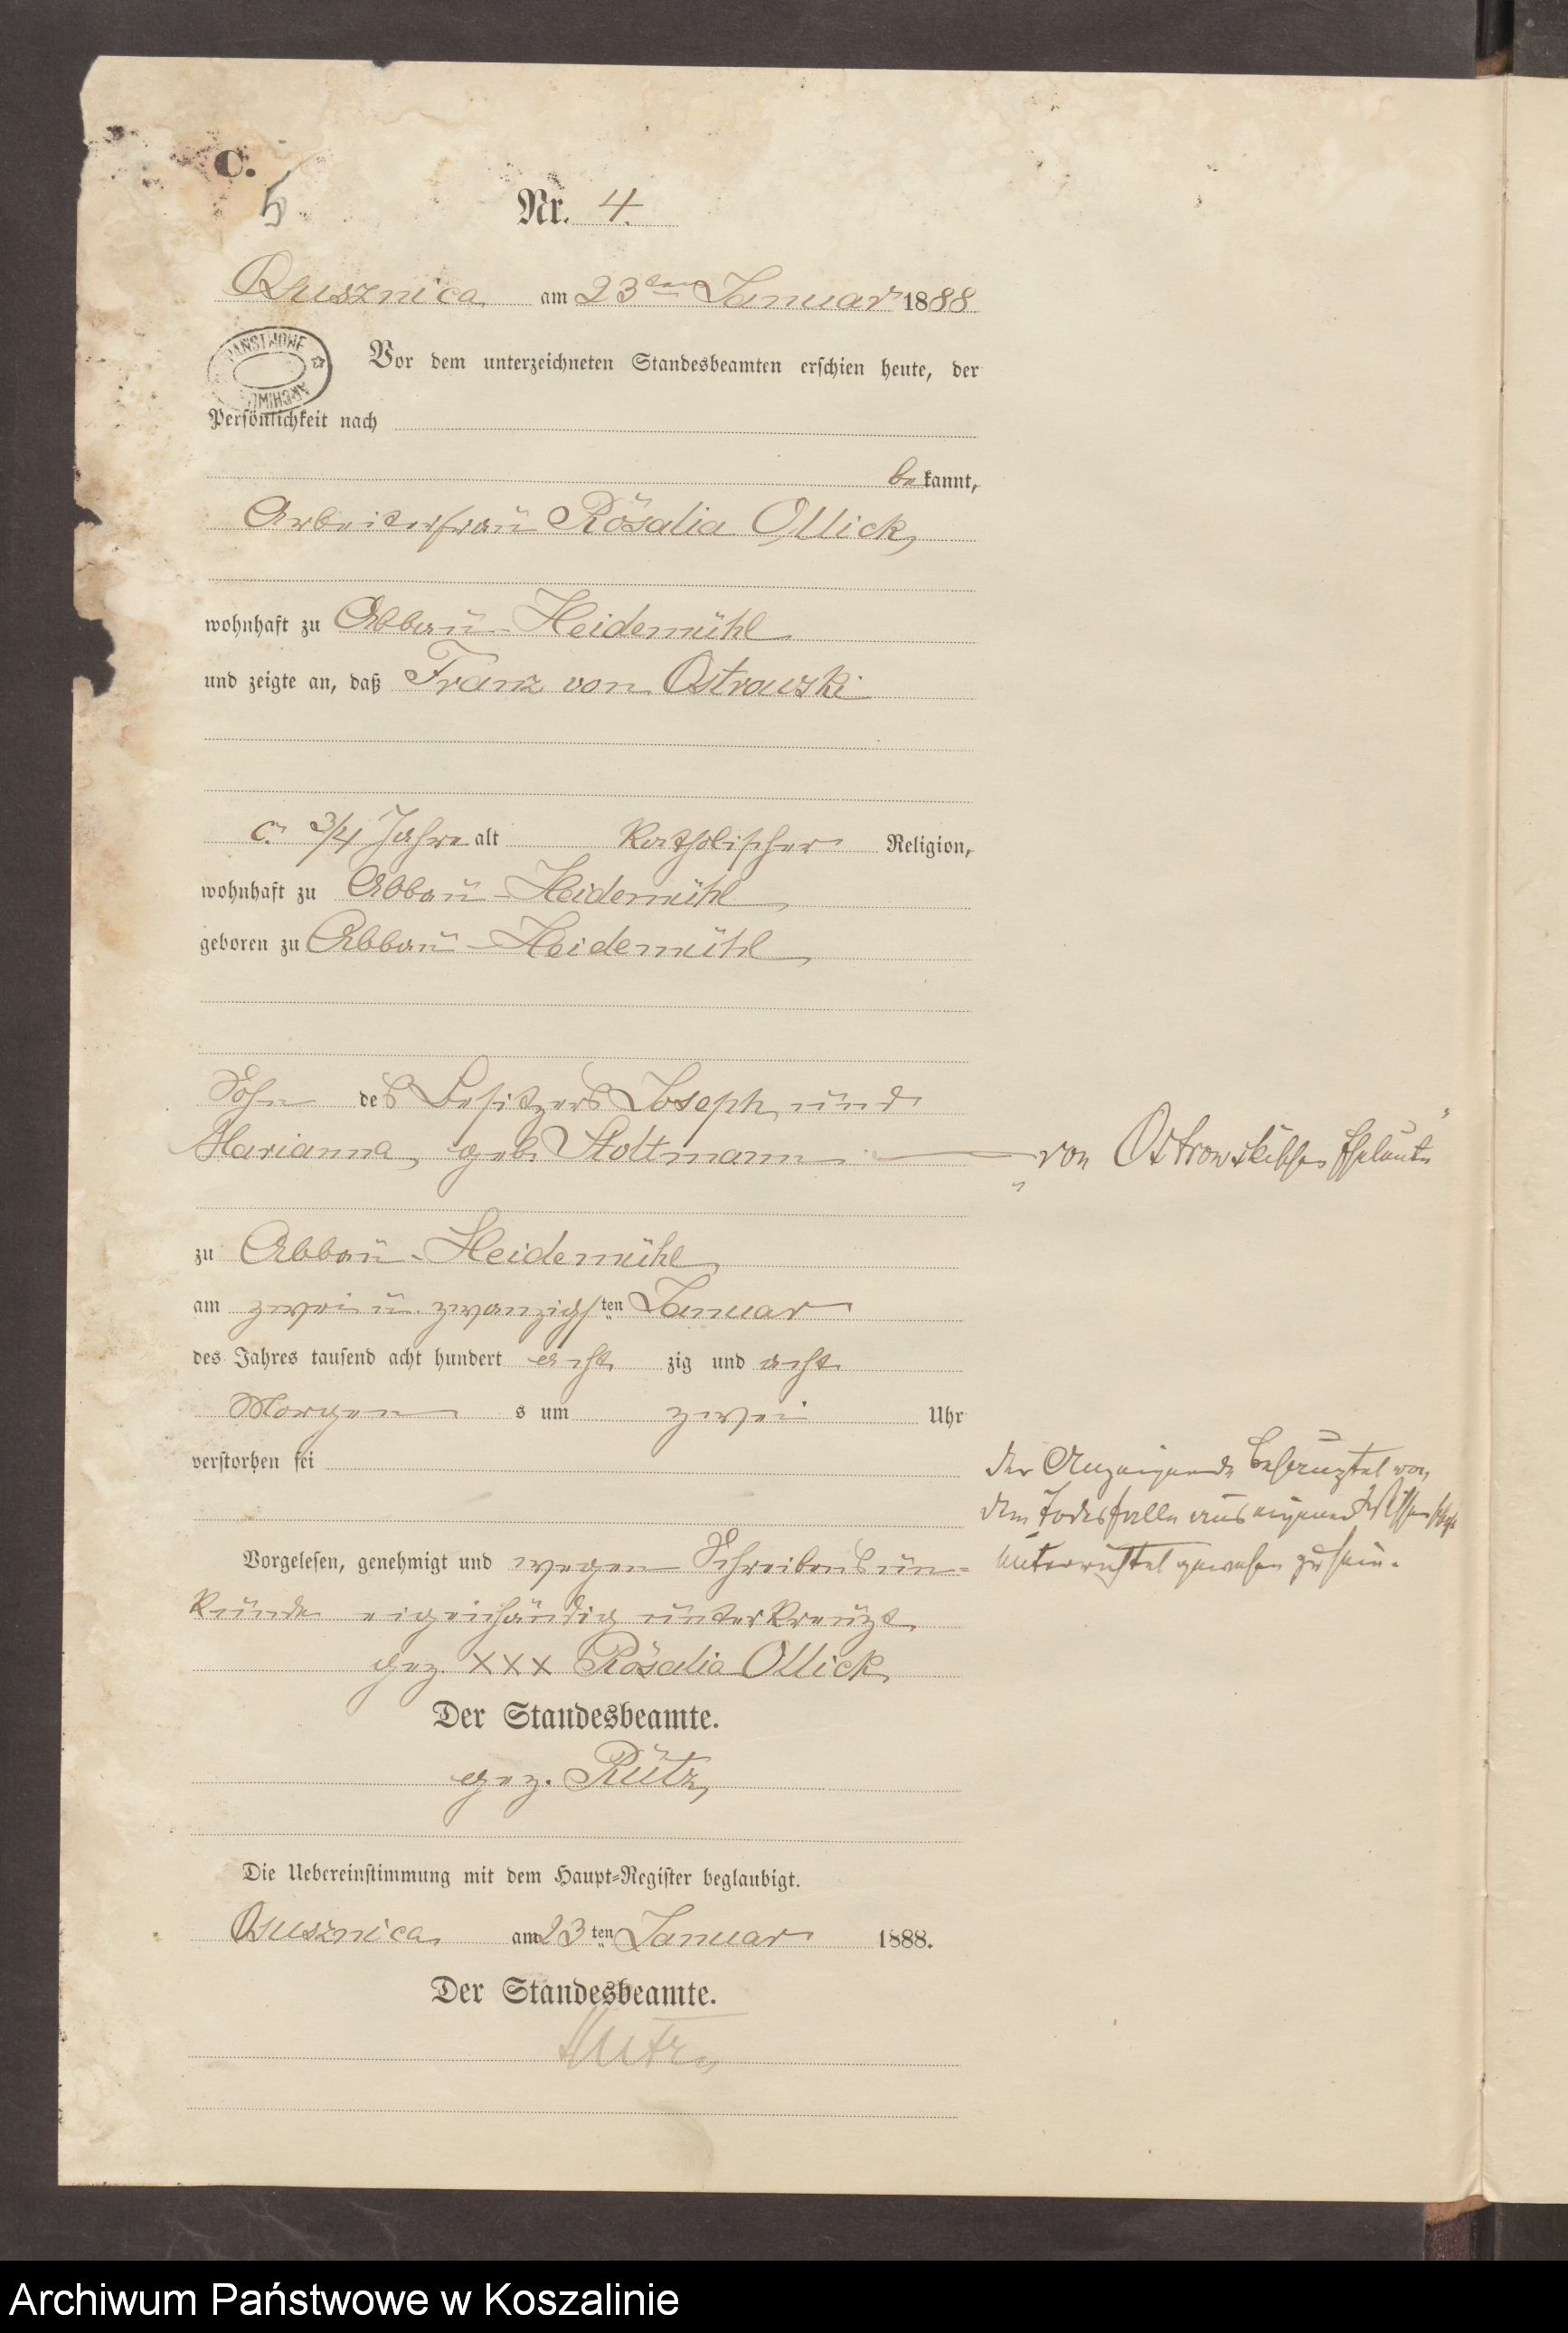 C.
5
Nr. 4.
Osusznica am 23ten Januar 1888
PAŃSTWOWE ARCHIWUM
Vor dem unterzeichneten Standesbeamten erschien heute, der
Persönlichkeit nach
bekannt,
Arbeiterfrau Rosalia Ollick,
wohnhaft zu Abbau-Heidemühl
und zeigte an, daß Franz von Ostrowski
c. 3/4 Jahre alt katholischer Religion,
wohnhaft zu Abbau-Heidemühl,
geboren zu Abbau-Heidemühl,
Sohn des Besitzers Joseph und
Marianna, geb. Stoltmann — "von Ostrowskischen Eheleute"
zu Abbau-Heidemühl,
am zwei u. zwanzigsten Januar
des Jahres tausend acht hundert acht zig und acht
Morgen s um zwei Uhr
verstorben sei
der Anzeigende bekundet von
dem Todesfalle aus eigener Wissenschaft
unterrichtet gewesen zu sein.
Vorgelesen, genehmigt und wegen Schreibensun-
kunde eigenhändig unterkreuzt
gez. XXX Rosalia Ollick,
Der Standesbeamte.
gez. Rutz,
Die Uebereinstimmung mit dem Haupt-Register beglaubigt.
Osusznica am 23ten Januar 1888.
Der Standesbeamte.
Rutz,
Archiwum Państwowe w Koszalinie